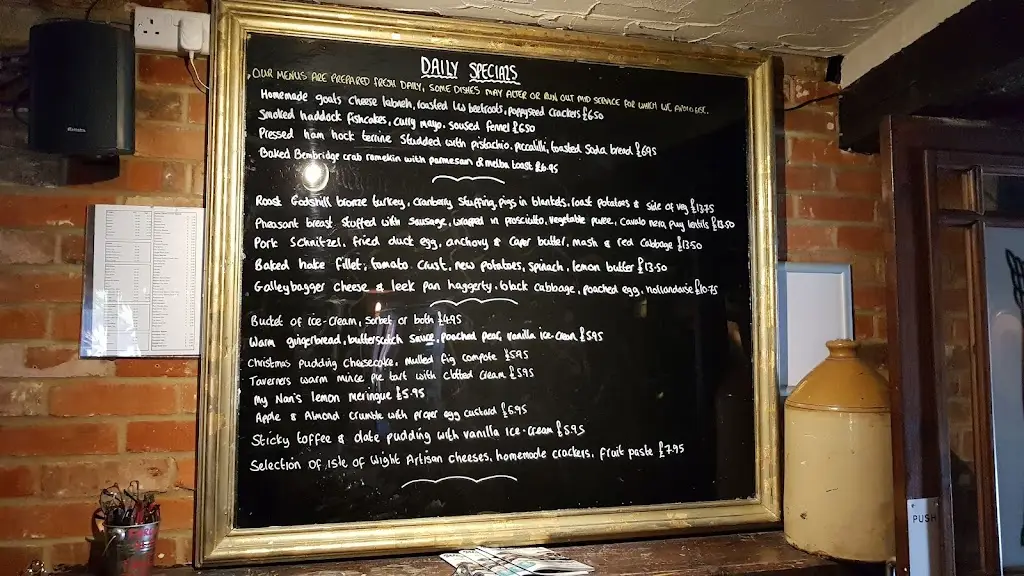 DAILY SPECIALS
OUR MENUS ARE PREPARED FRESH DAILY, SOME DISHES MAY ALTER OR RUN OUT MID SERVICE FOR WHICH WE APOLOGISE.
Homemade goats cheese labneh, roasted IW beetroots, poppyseed crackers £6.50
Smoked haddock fishcakes, curry mayo, soused fennel £6.50
Pressed ham hock terrine studded with pistachio, piccalilli, toasted Soda bread £6.95
Baked Bembridge crab ramekin with parmesan & melba toast £6.95
Roast Godshill bronze turkey, cranberry stuffing, pigs in blankets, roast potatoes & side of veg £13.75
Pheasant breast stuffed with sausage, wrapped in prosciutto, vegetable puree, Cavalo nero, puy lentils £13.50
Pork Schnitzel, fried duck egg, anchovy & caper butter, mash & red cabbage £13.50
Baked hake fillet, tomato crust, new potatoes, spinach, lemon butter £13.50
Galleybagger cheese & leek pan haggerty, black cabbage, poached egg, hollandaise £10.75
Bucket of ice-cream, sorbet or both £4.95
Warm gingerbread, butterscotch sauce, poached pear, vanilla ice-cream £5.95
Christmas pudding cheesecake, mulled fig compote £5.95
Taverners warm mince pie tart with clotted cream £5.95
My Nan's lemon meringue £5.95
Apple & Almond crumble with proper egg custard £6.95
Sticky toffee & date pudding with vanilla ice-cream £5.95
Selection of Isle of Wight Artisan cheeses, homemade crackers, fruit paste £7.95
PUSH